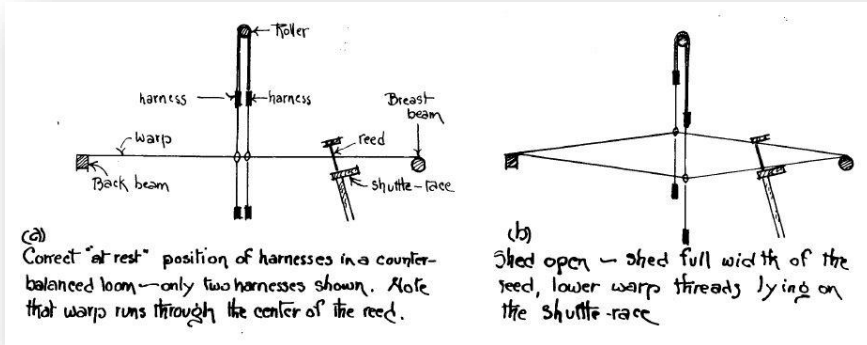 Roller
harness
harness
Breast
beam
warp
reed
Back beam
shuttle-race
(a)
Correct "at rest" position of harnesses in a counter-
balanced loom—only two harnesses shown. Note
that warp runs through the center of the reed.
(b)
Shed open – shed full width of the
reed, lower warp threads lying on
the shuttle-race